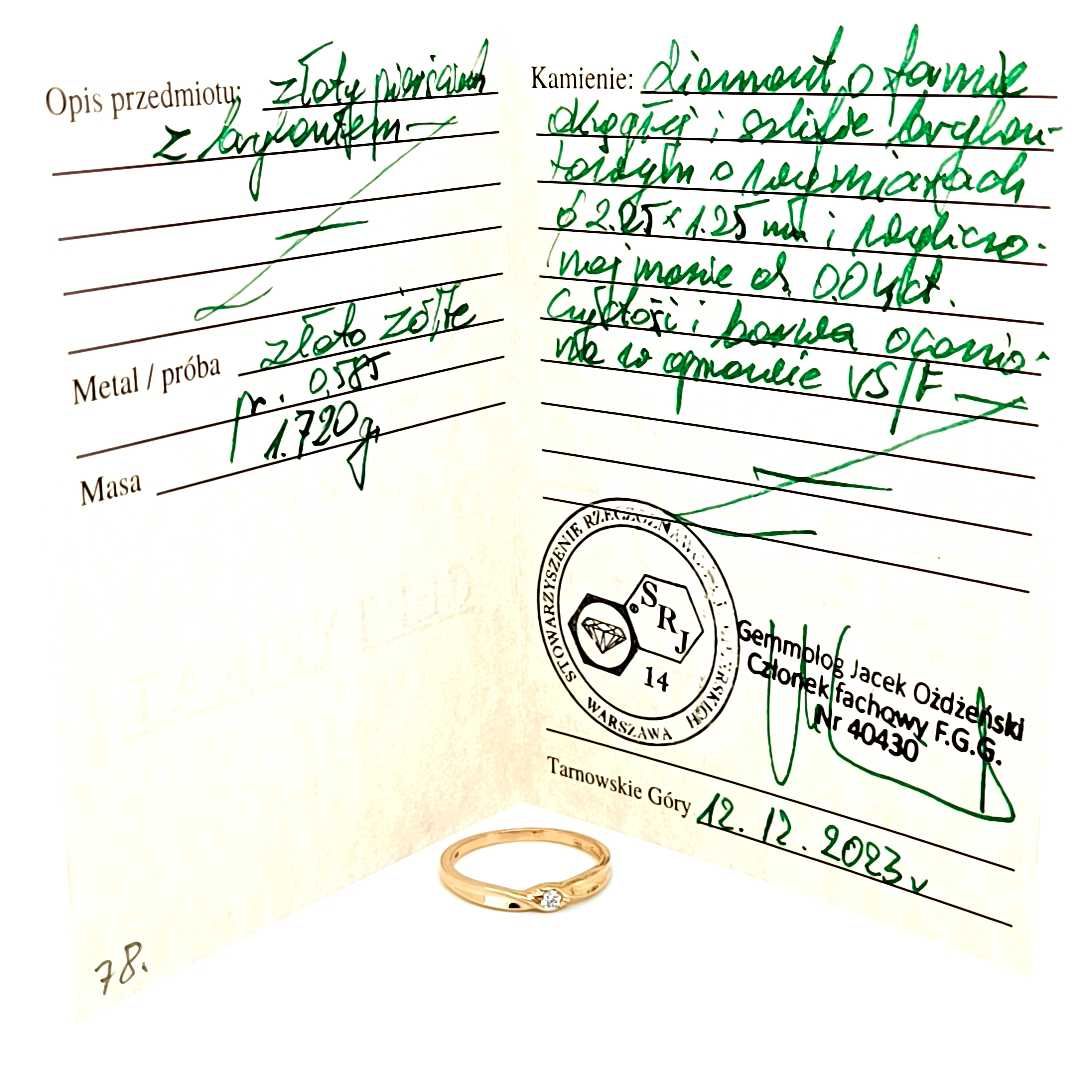 Opis przedmiotu: złoty pierścionek
z brylantem
Metal / próba złoto żółte
pr. 0,585
Masa 1.720g
78.
Kamienie: diament o formie
okrągłej i szlifie brylan-
towym o wymiarach
ø 2.25 x 1.25 mm i wyliczo-
nej masie ok. 0.04 ct.
Czystość i barwa ocenio-
na w oprawie VS/F
STOWARZYSZENIE
WARSZAWA
SRJ
14
Gemmolog Jacek Ożdżeński
Członek fachowy F.G.G.
Nr 40430
Tarnowskie Góry 12.12.2023r